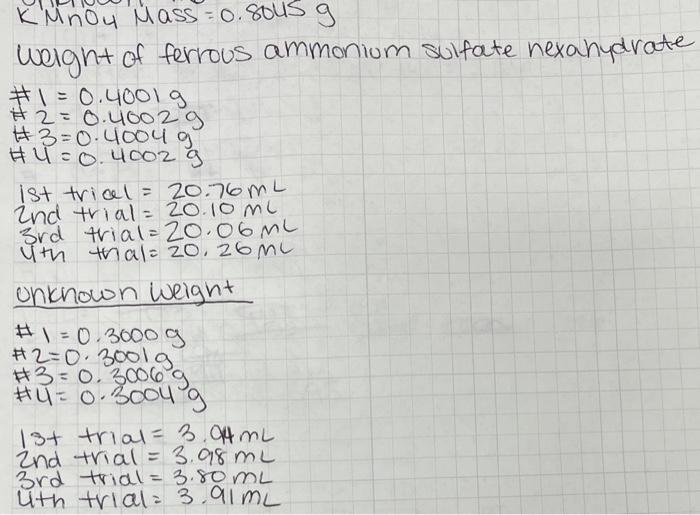 KMnO4 Mass = 0.8045 g
weight of ferrous ammonium sulfate hexahydrate
#1 = 0.4001 g
#2 = 0.4002 g
#3 = 0.4004 g
#4 = 0.4002 g
1st trial = 20.76 mL
2nd trial = 20.10 mL
3rd trial = 20.06 mL
4th trial = 20.26 mL
Unknown Weight
#1 = 0.3000 g
#2 = 0.3001 g
#3 = 0.3006 g
#4 = 0.3004 g
1st trial = 3.94 mL
2nd trial = 3.98 mL
3rd trial = 3.80 mL
4th trial = 3.91 mL